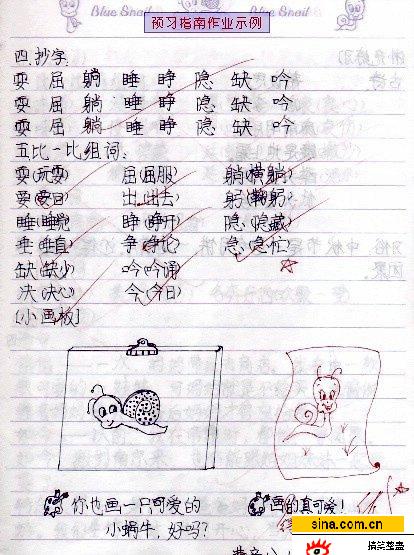 Blue Snail 预习指南作业示例 Blue Snail
四.抄字:
耍 屈 躺 睡 睁 隐 缺 吟
耍 屈 躺 睡 睁 隐 缺 吟
耍 屈 躺 睡 睁 隐 缺 吟
五比一比组词:
耍(玩耍) 屈(屈服) 躺(横躺)
出(出去) 躬(鞠躬)
睡(睡觉) 睁(睁开) 隐(隐藏)
垂(垂直) 争(争论) 急(急忙)
缺(缺少) 吟(吟诵)
决(决心) 今(今日)
[小画板]
你也画一只可爱的 画的真可爱!
小蜗牛,好吗?
sina.com.cn
搞笑整蛊